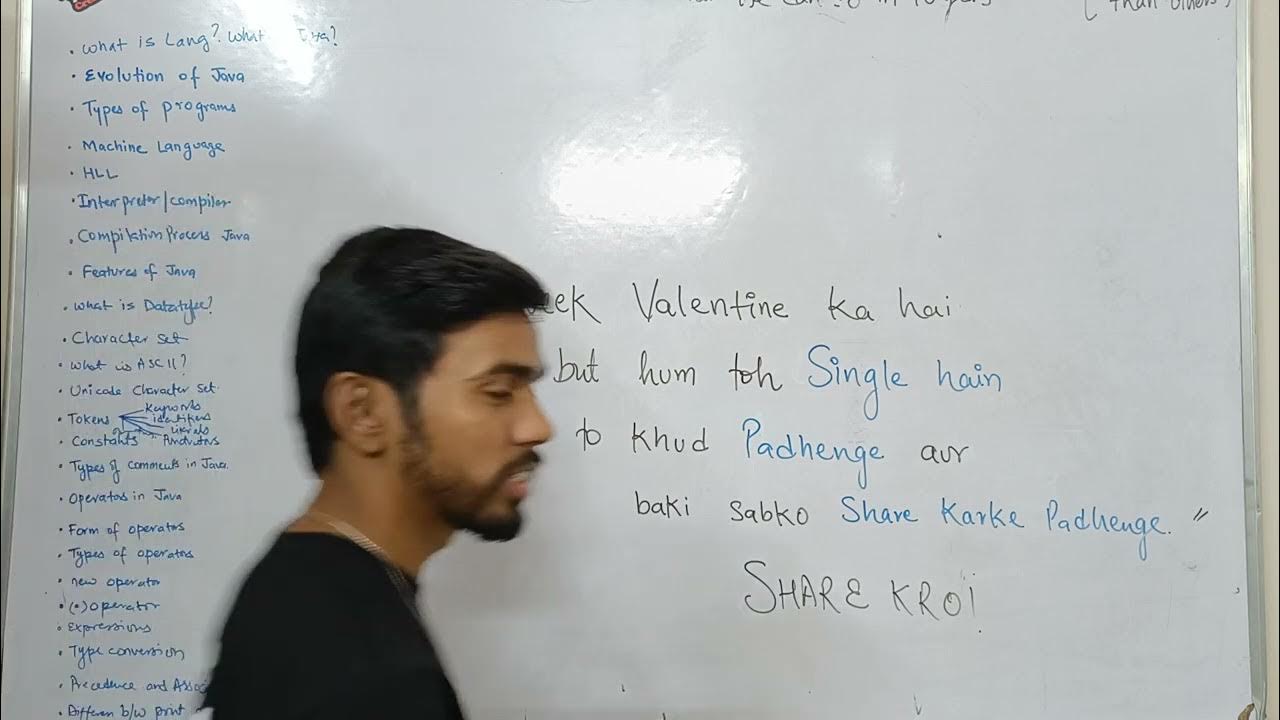 in 10 years (than others)
• What is Lang? What
• Evolution of Java
• Types of programs
• Machine Language
• HLL
• Interpreter/compiler
• Compilation Process Java
• Features of Java
• What is Datatype?
• Character set
• What is ASCII?
• Unicode Character Set
• Tokens Keywords
identifiers
literals
• Constants
• Types of comments in Java.
• Operators in Java
• Form of operators
• Types of operators
• new operator
• (•) operator
• Expressions
• Type conversion
• Precedence and
• Differen b/w print
Valentine ka hai
but hum toh Single hain
to khud Padhenge aur
baki sabko Share Karke Padhenge. "
SHARE KROI